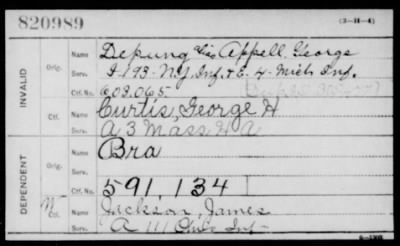 820989
(3-H-4)
INVALID
Orig.
Name Depung alias Appell, George
Serv. I-193-N.Y. Inf. & E. 4-Mich Inf.
Ctf. No. 603.065
Ctf. Name Curtis, George H
Serv. A 3 Mass H A
DEPENDENT
Orig.
Name Bra
Serv.
Ctf. No. 591,134
Ctf. Name Jackson, James
Serv. A 111 Ohio Inf